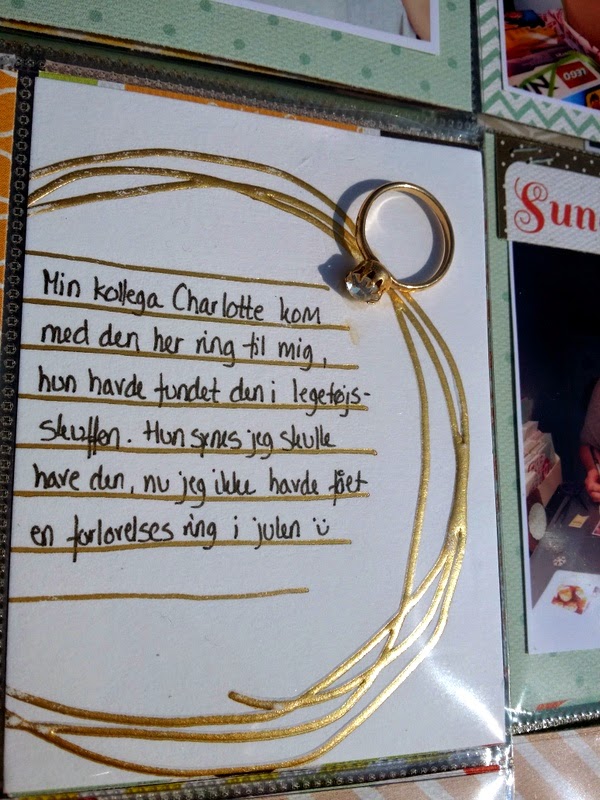 LEGO
Sun
Min kollega Charlotte kom
med den her ring til mig,
hun havde fundet den i legetøjs-
skuffen. Hun synes jeg skulle
have den, nu jeg ikke havde fået
en forlovelses ring i julen ü